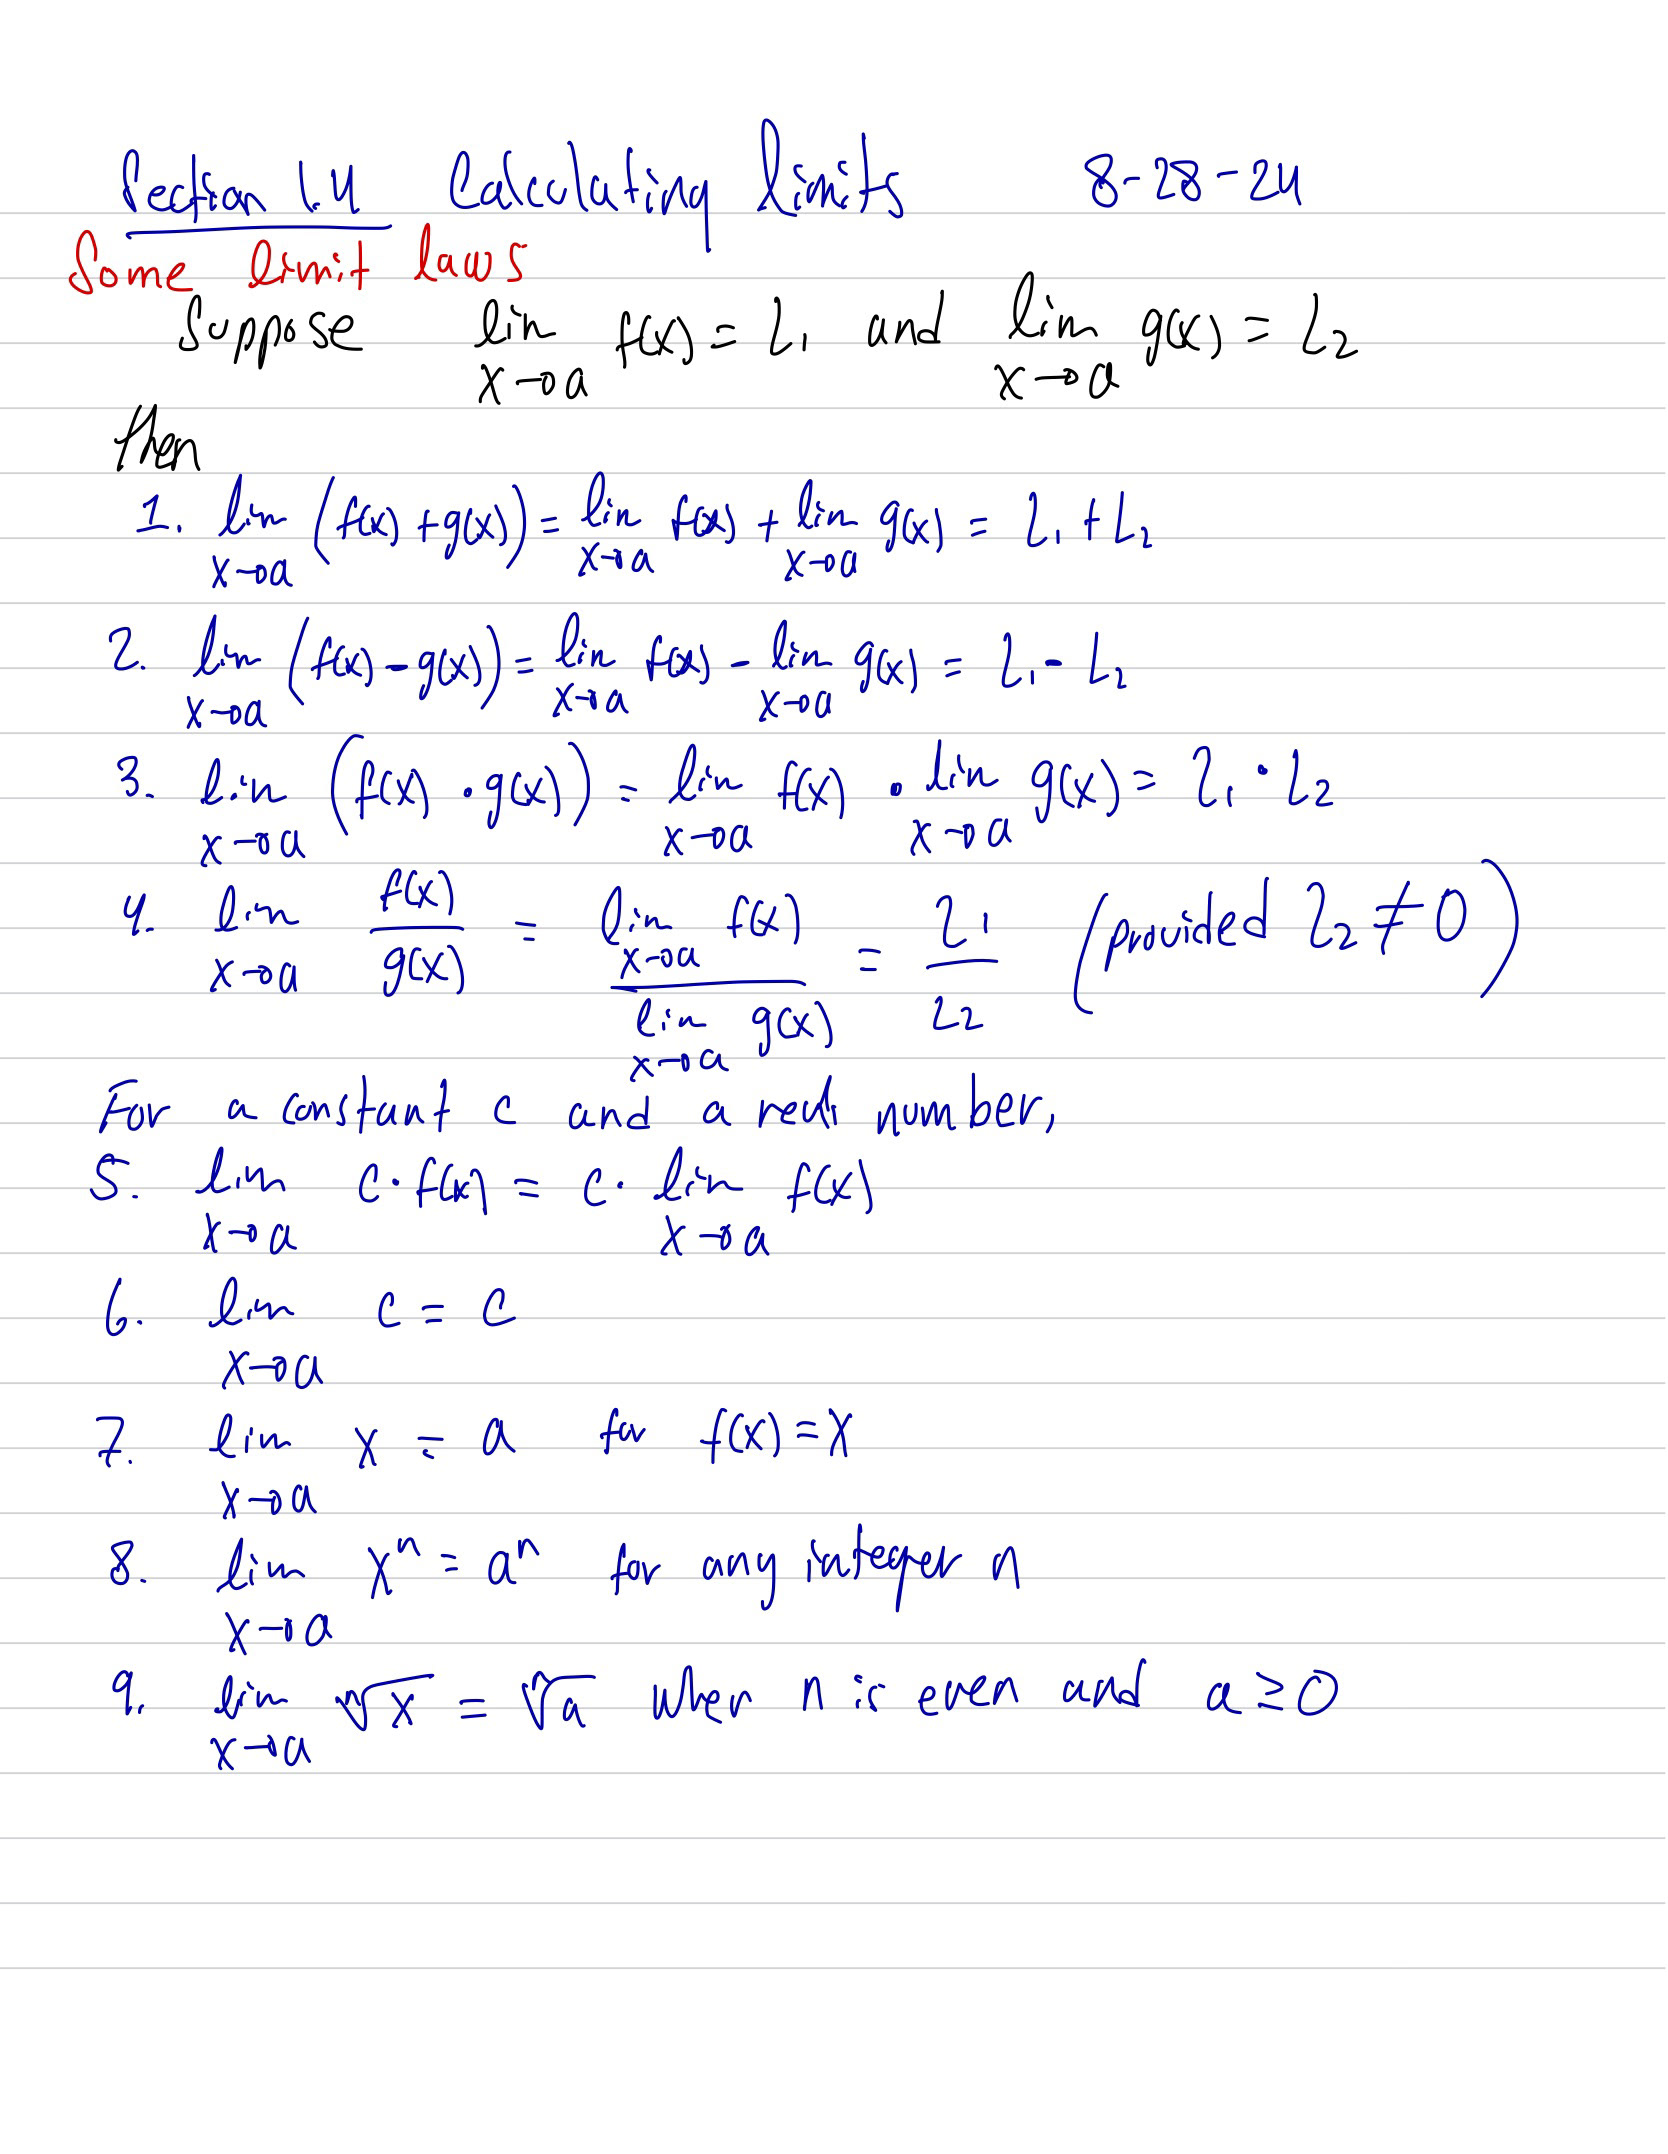 Section 1.4 Calculating limits 8-28-24
Some limit laws
Suppose lim x→a f(x) = L₁ and lim x→a g(x) = L₂
then
1. lim x→a (f(x) + g(x)) = lim x→a f(x) + lim x→a g(x) = L₁ + L₂
2. lim x→a (f(x) - g(x)) = lim x→a f(x) - lim x→a g(x) = L₁ - L₂
3. lim x→a (f(x) · g(x)) = lim x→a f(x) · lim x→a g(x) = L₁ · L₂
4. lim x→a f(x)/g(x) = lim x→a f(x) / lim x→a g(x) = L₁/L₂ (provided L₂ ≠ 0)
For a constant c and a real number,
5. lim x→a c · f(x) = c · lim x→a f(x)
6. lim x→a c = c
7. lim x→a x = a for f(x) = x
8. lim x→a xⁿ = aⁿ for any integer n
9. lim x→a ⁿ√x = ⁿ√a when n is even and a ≥ 0